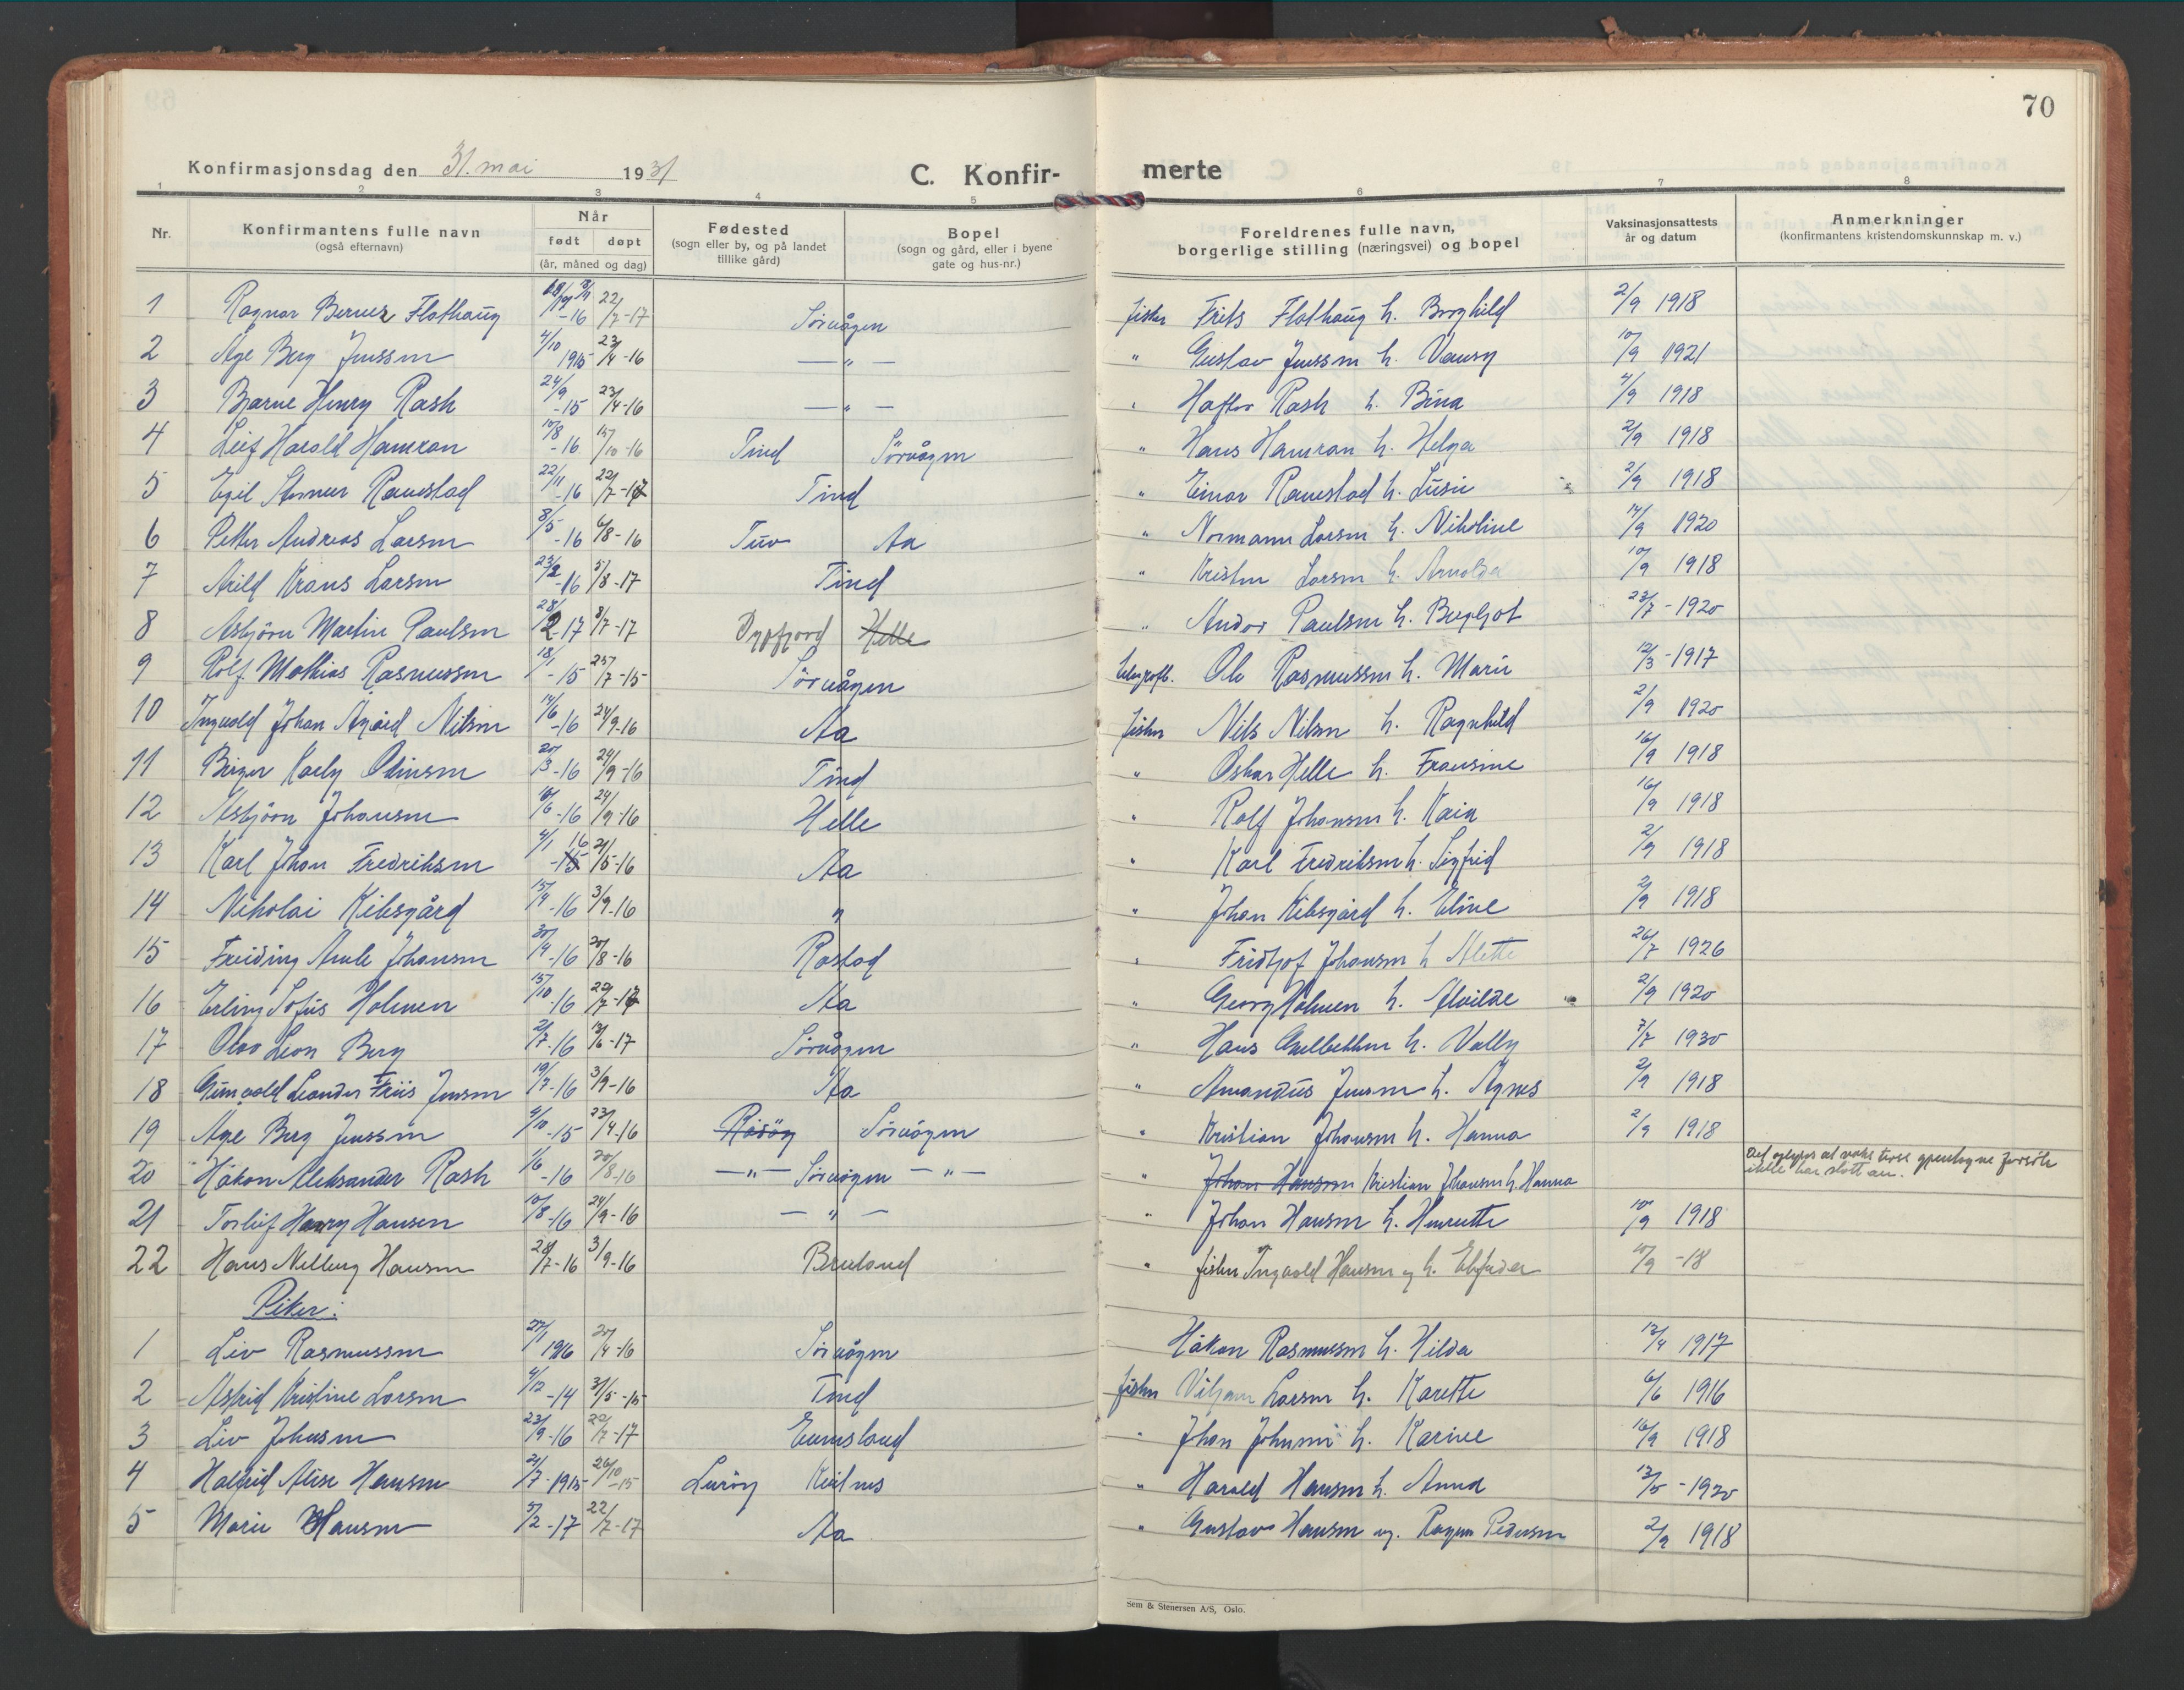 70
Konfirmasjonsdag den 31. mai 1931
C. Konfir- merte
1 2 3 4 5 6 7 8
Nr. Konfirmantens fulle navn (også efternavn) Når født døpt (år, måned og dag) Fødested (sogn eller by, og på landet tillike gård) Bopel (sogn og gård, eller i byene gate og hus-nr.) Foreldrenes fulle navn, borgerlige stilling (næringsvei) og bopel Vaksinasjonsattests år og datum Anmerkninger (konfirmantens kristendomskunnskap m. v.)
1 Ragnar Berner Flathaug -16 22/7-17 Sörvågen fisker Frits Flathaug h. Borghild 2/9 1918
2 Åge Berg Jenssen 4/10 1915 23/4-16 — " — " Gustav Jenssen h. 10/9 1921
3 Bjarne Henry Rash 24/9-15 23/4-16 — " — " Haftor Rash h. Bina 4/9 1918
4 Leif Harald Hamran 10/8-16 15/10-16 Tind Sörvågen " Hans Hamran h. Helga 2/9 1918
5 Egil Ramstad 22/11-16 22/7-17 Tind " Einar Ramstad h. Lusie 2/9 1918
6 Petter Andreas Larsen 8/5-16 6/8-16 Tuv Aa " Normann Larsen h. Nikoline 14/9 1920
7 Arild Krans Larsen 23/2-16 5/8-17 Tind " Kristen Larsen h. Arnolda 10/9 1918
8 Asbjörn Martin Paulsen 28/2-17 8/7-17 Dypfjord Helle " Andor Paulsen h. Bergljot 23/7-1920
9 Rolf Mathias Rasmussen 18/1-15 25/7-15 Sörvågen telegrafb. Ole Rasmussen h. Marie 12/3-1917
10 Ingvald Johan Agard Nilsen 14/6-16 24/9-16 Aa fisker Nils Nilsen h. Ragnhild 2/9 1920
11 Birger Karly Olinsen 20/3-16 24/9-16 Tind " Oskar Helle h. Fransine 16/9 1918
12 Asbjörn Johansen /6-16 24/9-16 Helle " Rolf Johansen h. Kaia 16/9 1918
13 Karl Johan Fredriksen 4/1 16 -15 21/5-16 Aa " Karl Fredriksen h. Sigfrid 2/9 1918
14 Nikolai Kilsgård 15/4-16 3/9-16 " " Johan Kilsgård h. Eline 2/9 1918
15 Freiding Arule Johansen 30/4-16 20/8-16 Rostad " Fridtjof Johansen h Alette 26/7 1926
16 Erling Sofus Holmen 15/10-16 22/7-17 Aa " Georg Holmen h. Alvilde 2/9 1920
17 Olav Leon Berg 2/7-16 13/6-17 Sörvågen " Hans h. Vally 7/7 1930
18 Gunvald Leander Friis Jensen 19/7-16 3/9-16 Aa " Amandus Jensen h. Agnes 2/9 1918
19 Åge Berg Jenssen 4/10-15 23/4-16 Rösöy Sörvågen " Kristian Johansen h. Hanna 2/9 1918
20 Håkon Aleksander Rash 1/6-16 20/8-16 — " — Sörvågen — " — " Johan Hansen Kristian Johansen h. Hanna Det oplyses at ikke har slått an.
21 Torleif Harry Hansen 10/8-16 24/9-16 — " — " Johan Hansen h. Henriette 10/9 1918
22 Hans Nelling Hansen 28/7-16 3/9-16 Breiland " fisker Ingvald Hansen og h. 10/9 -18
Piker:
1 Liv Rasmussen 27/1 1916 20/4-16 Sörvågen Håkon Rasmussen h. Hilda 12/4 1917
2 Astrid Kristine Larsen 4/12-14 31/5-15 Tind fisker Viljam Larsen h. Karette 6/6 1916
3 Liv Johnsen 23/9-16 22/7-17 " Johan Johnsen h. Karine 16/9 1918
4 Halfrid Alise Hansen 21/7-1915 26/10-15 Luröy Reines " Harald Hansen h. Anna 12/5-1920
5 Marie Hansen 5/2-17 22/7-17 Aa " Gustav Hansen og Ragna Pedersen 2/9 1918
Sem & Stenersen A/S, Oslo.